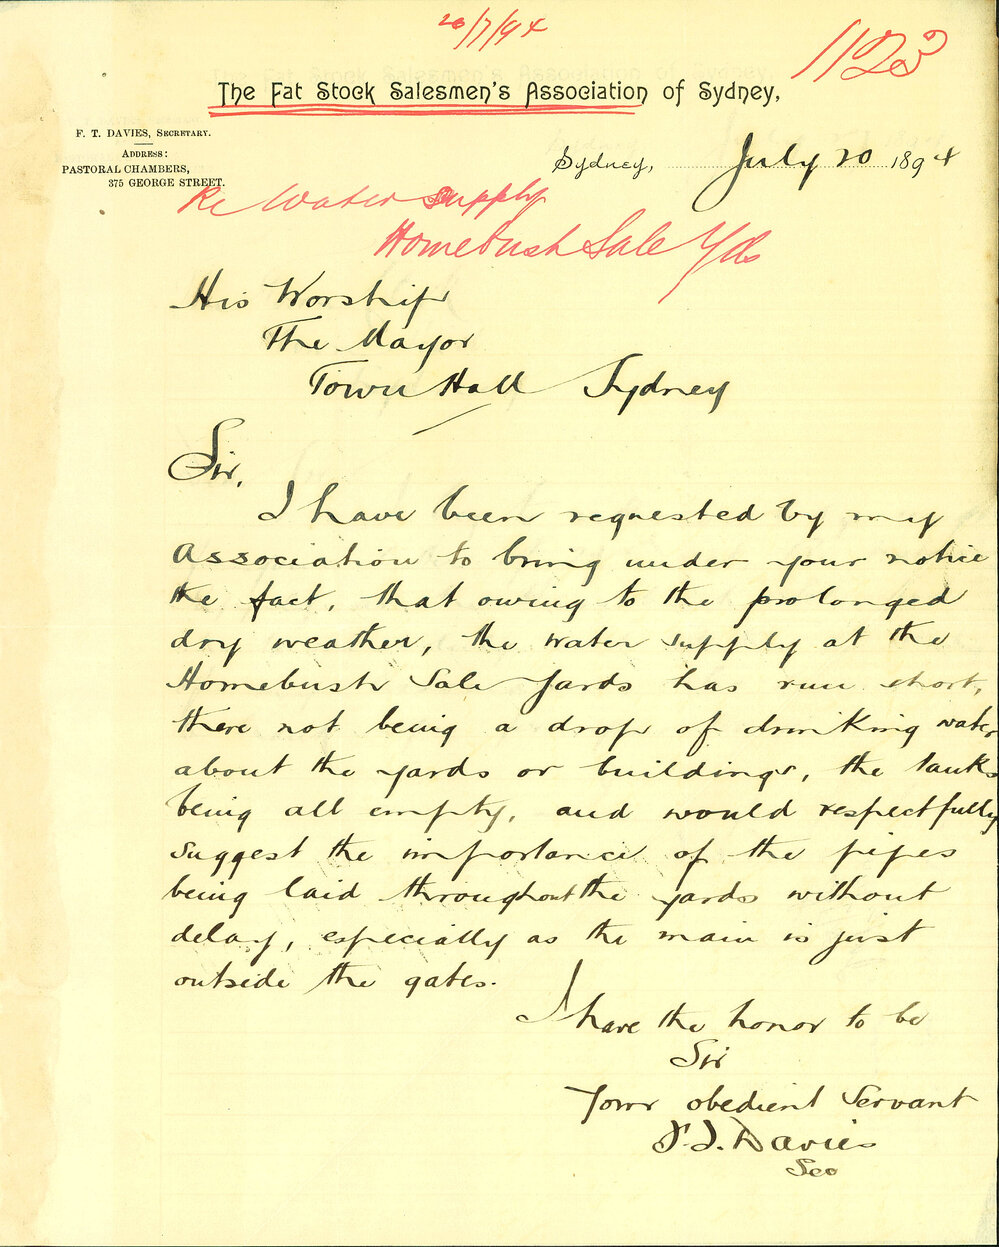 20/7/94
1123
The Fat Stock Salesmen's Association of Sydney,
F. T. DAVIES, SECRETARY.
ADDRESS:
PASTORAL CHAMBERS,
375 GEORGE STREET.
Sydney, July 20 1894
Re Water Supply
Homebush Sale Yds
His Worship
The Mayor
Town Hall Sydney
Sir,
I have been requested by my
Association to bring under your notice
the fact, that owing to the prolonged
dry weather, the water supply at the
Homebush Sale Yards has run short,
there not being a drop of drinking water
about the yards or buildings, the tanks
being all empty, and would respectfully
suggest the importance of the pipes
being laid throughout the yards without
delay, especially as the main is just
outside the gates.
I have the honor to be
Sir
Your obedient Servant
F. T. Davies
Sec